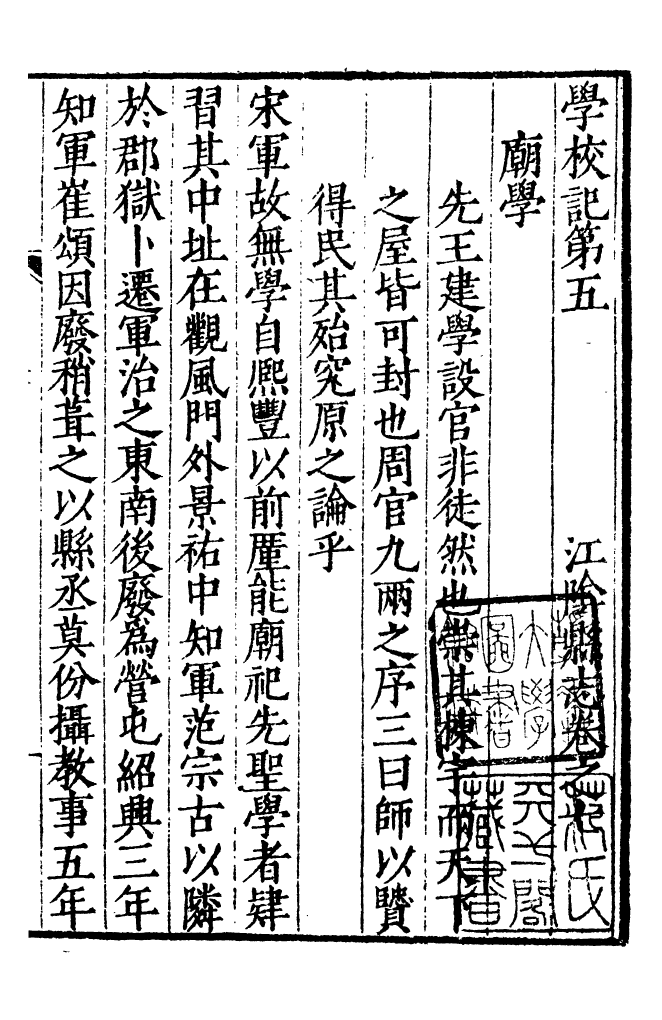 學校記第五　江陰縣志卷之
廟學
先王建學設官非徒然也崇其棟宇而天下
之屋皆可封也周官九兩之序三曰師以賢
得民其殆究原之論乎
宋軍故無學自熙豐以前厪能廟祀先聖學者肄
習其中址在觀風門外景祐中知軍范宗古以隣
於郡獄卜遷軍治之東南後廢爲營屯紹興三年
知軍崔頌因廢稍葺之以縣丞莫份攝教事五年
大學
圖書
范氏
天一閣
藏書